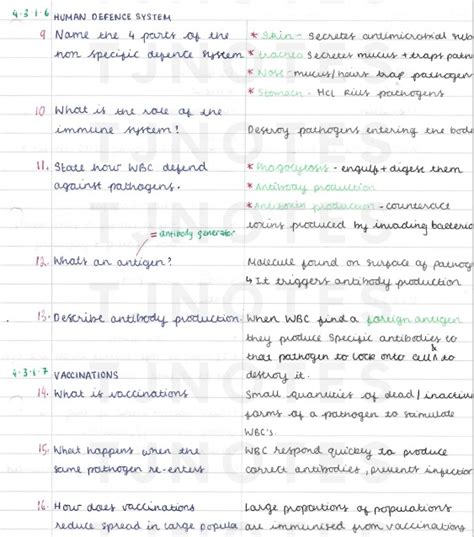 4.3.1.6 HUMAN DEFENCE SYSTEM
9. Name the 4 parts of the * Skin - Secretes antimicrobial sub
non specific defence system * trachea Secretes mucus + traps path
* Nose - mucus/hairs trap pathogen
* Stomach - HCL kills pathogens
10. What is the role of the
immune system? Destroy pathogens entering the body
11. State how WBC defend * Phagocytosis - engulf + digest them
against pathogens. * Antibody production
* Antitoxin production - counteract
toxins produced by invading bacteria
= antibody generator
12. Whats an antigen? Molecule found on surface of pathog
↳ It triggers antibody production
13. Describe antibody production. When WBC find a foreign antigen
they produce specific antibodies to
that pathogen to lock onto cell &
destroy it.
4.3.1.7 VACCINATIONS
14. What is vaccinations Small quantities of dead / inactive
forms of a pathogen to stimulate
WBC's.
15. What happens when the WBC respond quickly to produce
same pathogen re-enters correct antibodies, prevents infection
16. How does vaccinations Large proportions of populations
reduce spread in large popula are immunised from vaccinations
TJNOTES
TJNOTES
TJNOTES
TJNOTES
TJNOTES
TJNOTES